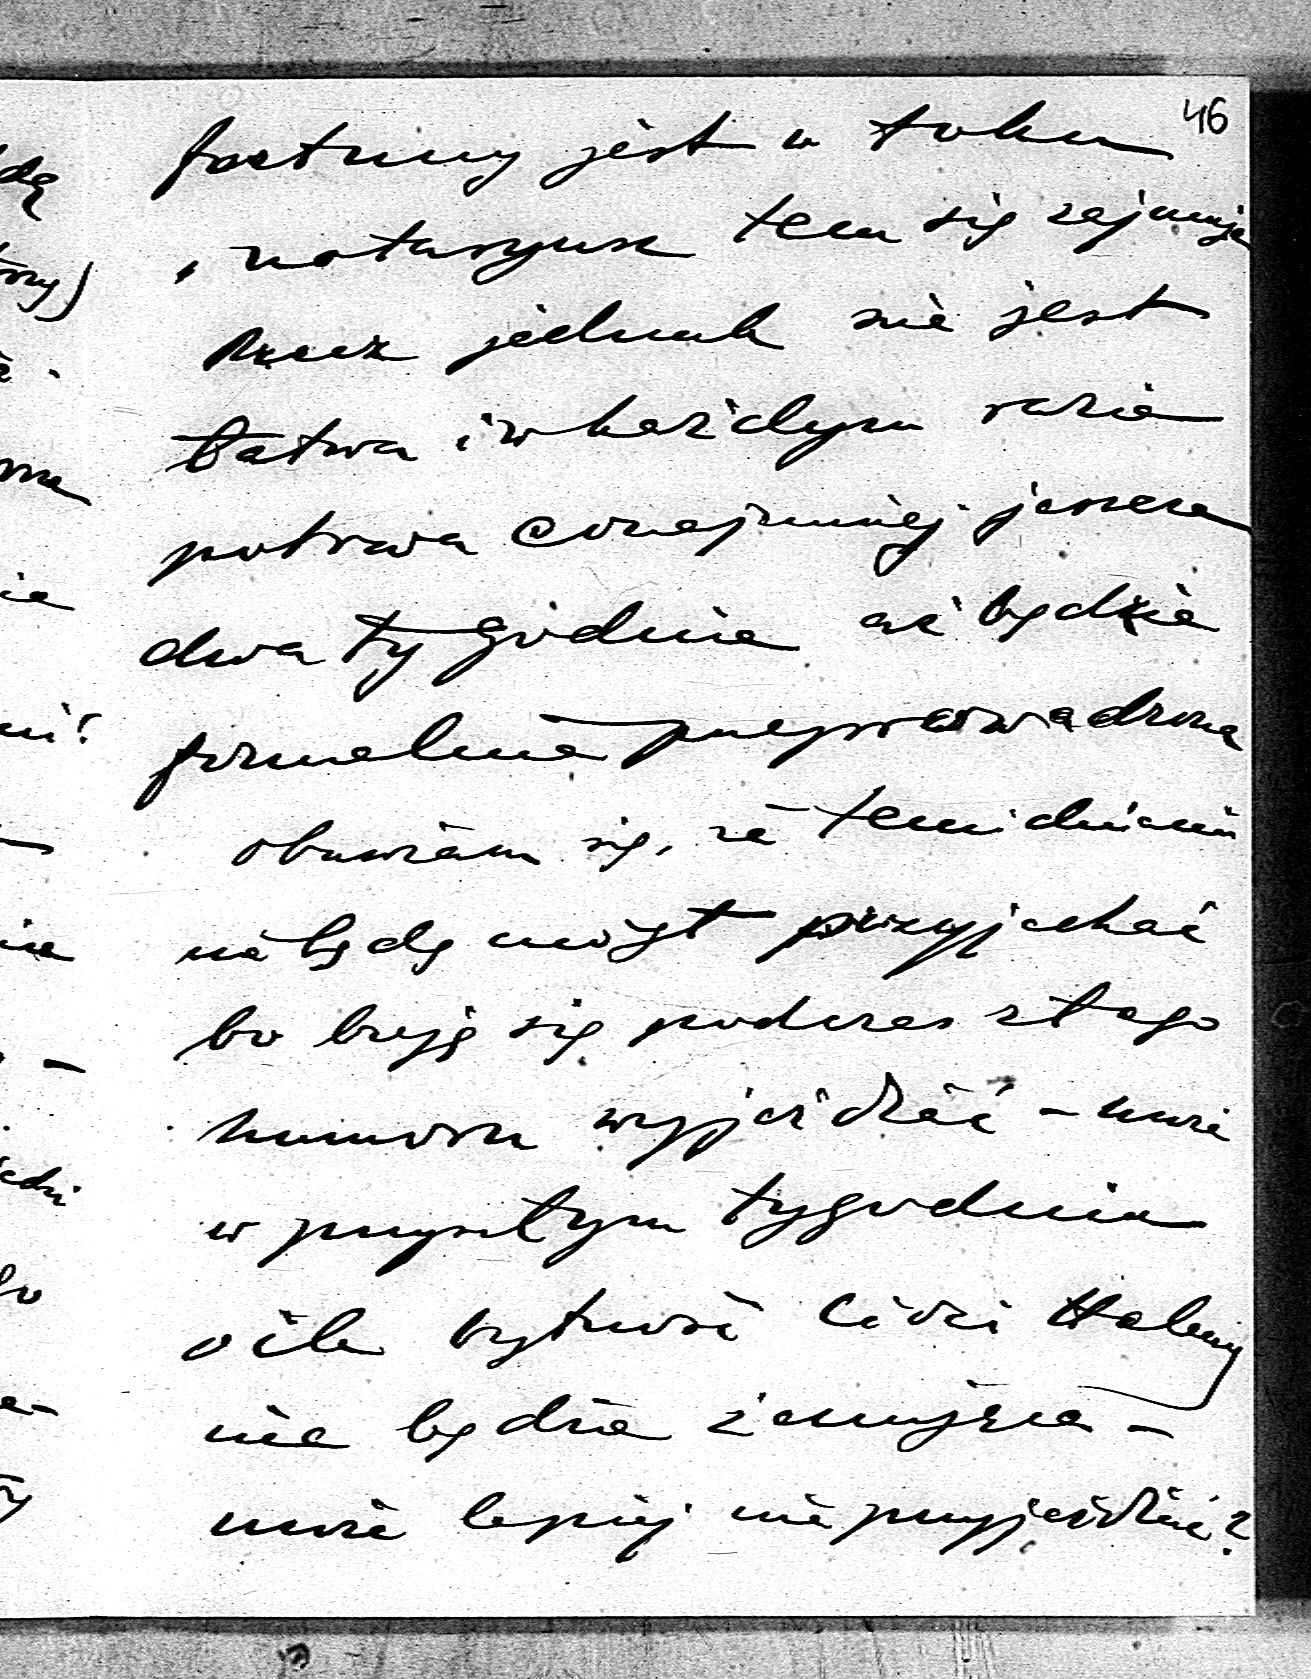 46
fortuny jest w toku
, notaryusz tem się zajmuje
Rzecz jednak nie jest
łatwa i w każdym razie
potrwa conajmniej jeszcze
dwa tygodnie aż będzie
formalnie przeprowadzoną
obawiam się, że temi dniami
nie będę mógł przyjechać
bo boję się podczas złego
humoru wyjeżdżać – może
w przyszłym tygodniu
o ile bytność Cioci Haliny
nie będzie
może lepiej nie przyjeżdżać?